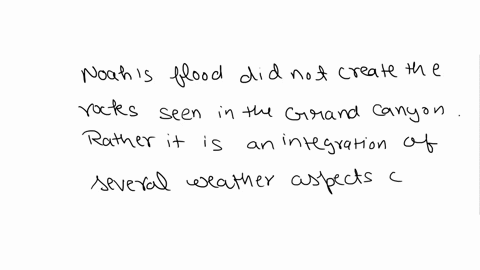 Noah's flood did not create the
rocks seen in the Grand Canyon.
Rather it is an integration of
several weather aspects c